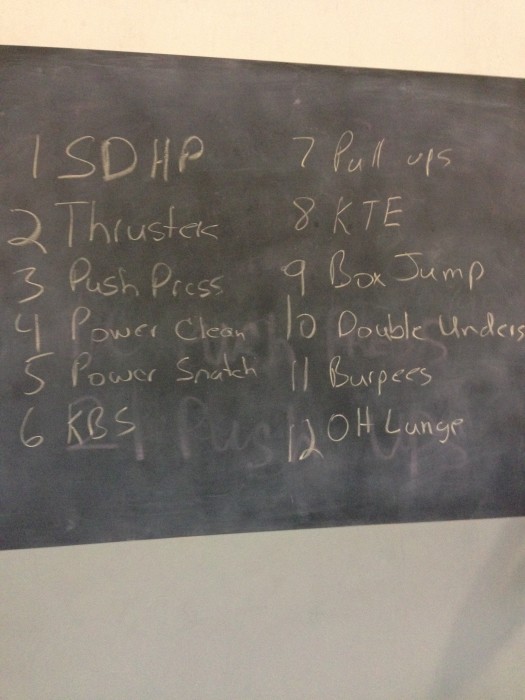 1 SDHP
2 Thruster
3 Push Press
4 Power Clean
5 Power Snatch
6 KBS
7 Pull ups
8 KTE
9 Box Jump
10 Double Unders
11 Burpees
12 OH Lunge